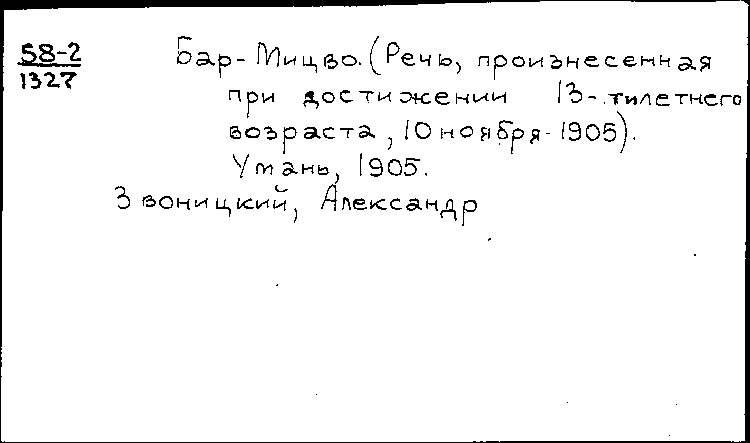 58-2
1327
Бар-Мицво. (Речь, произнесенная
при достижении 13-тилетнего
возраста, 10 ноября 1905).
Умань, 1905.
Звоницкий, Александр